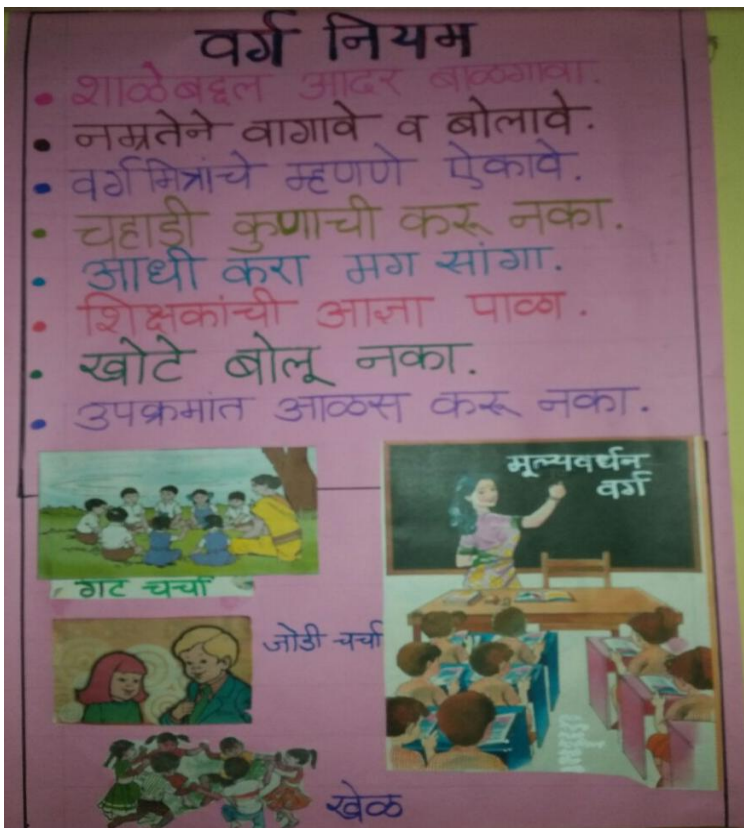 वर्ग नियम
• शाळेबद्दल आदर बाळगावा.
• नम्रतेने वागावे व बोलावे.
• वर्गमित्रांचे म्हणणे ऐकावे.
• चहाडी कुणाची करू नका.
• आधी करा मग सांगा.
• शिक्षकांची आज्ञा पाळा.
• खोटे बोलू नका.
• उपक्रमांत आळस करू नका.
मूल्यवर्धन
वर्ग
गट चर्चा
जोडी चर्चा
खेळ